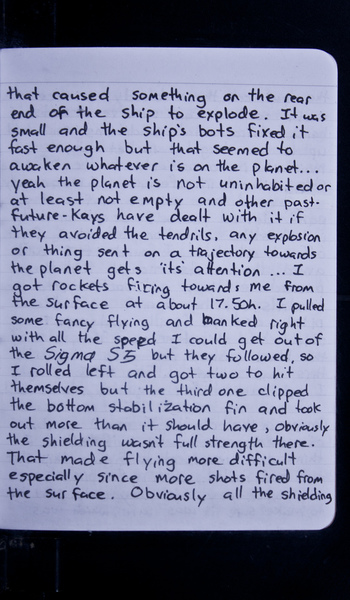 that caused something on the rear
end of the ship to explode. It was
small and the ship's bots fixed it
fast enough but that seemed to
awaken whatever is on the planet...
yeah the planet is not uninhabited or
at least not empty and other past-
future-Kays have dealt with it if
they avoided the tendrils, any explosion
or thing sent on a trajectory towards
the planet gets 'its' attention ... I
got rockets firing towards me from
the surface at about 17.50h. I pulled
some fancy flying and banked right
with all the speed I could get out of
the Sigma S5 but they followed, so
I rolled left and got two to hit
themselves but the third one clipped
the bottom stabilization fin and took
out more than it should have, obviously
the shielding wasn't full strength there.
That made flying more difficult
especially since more shots fired from
the surface. Obviously all the shielding